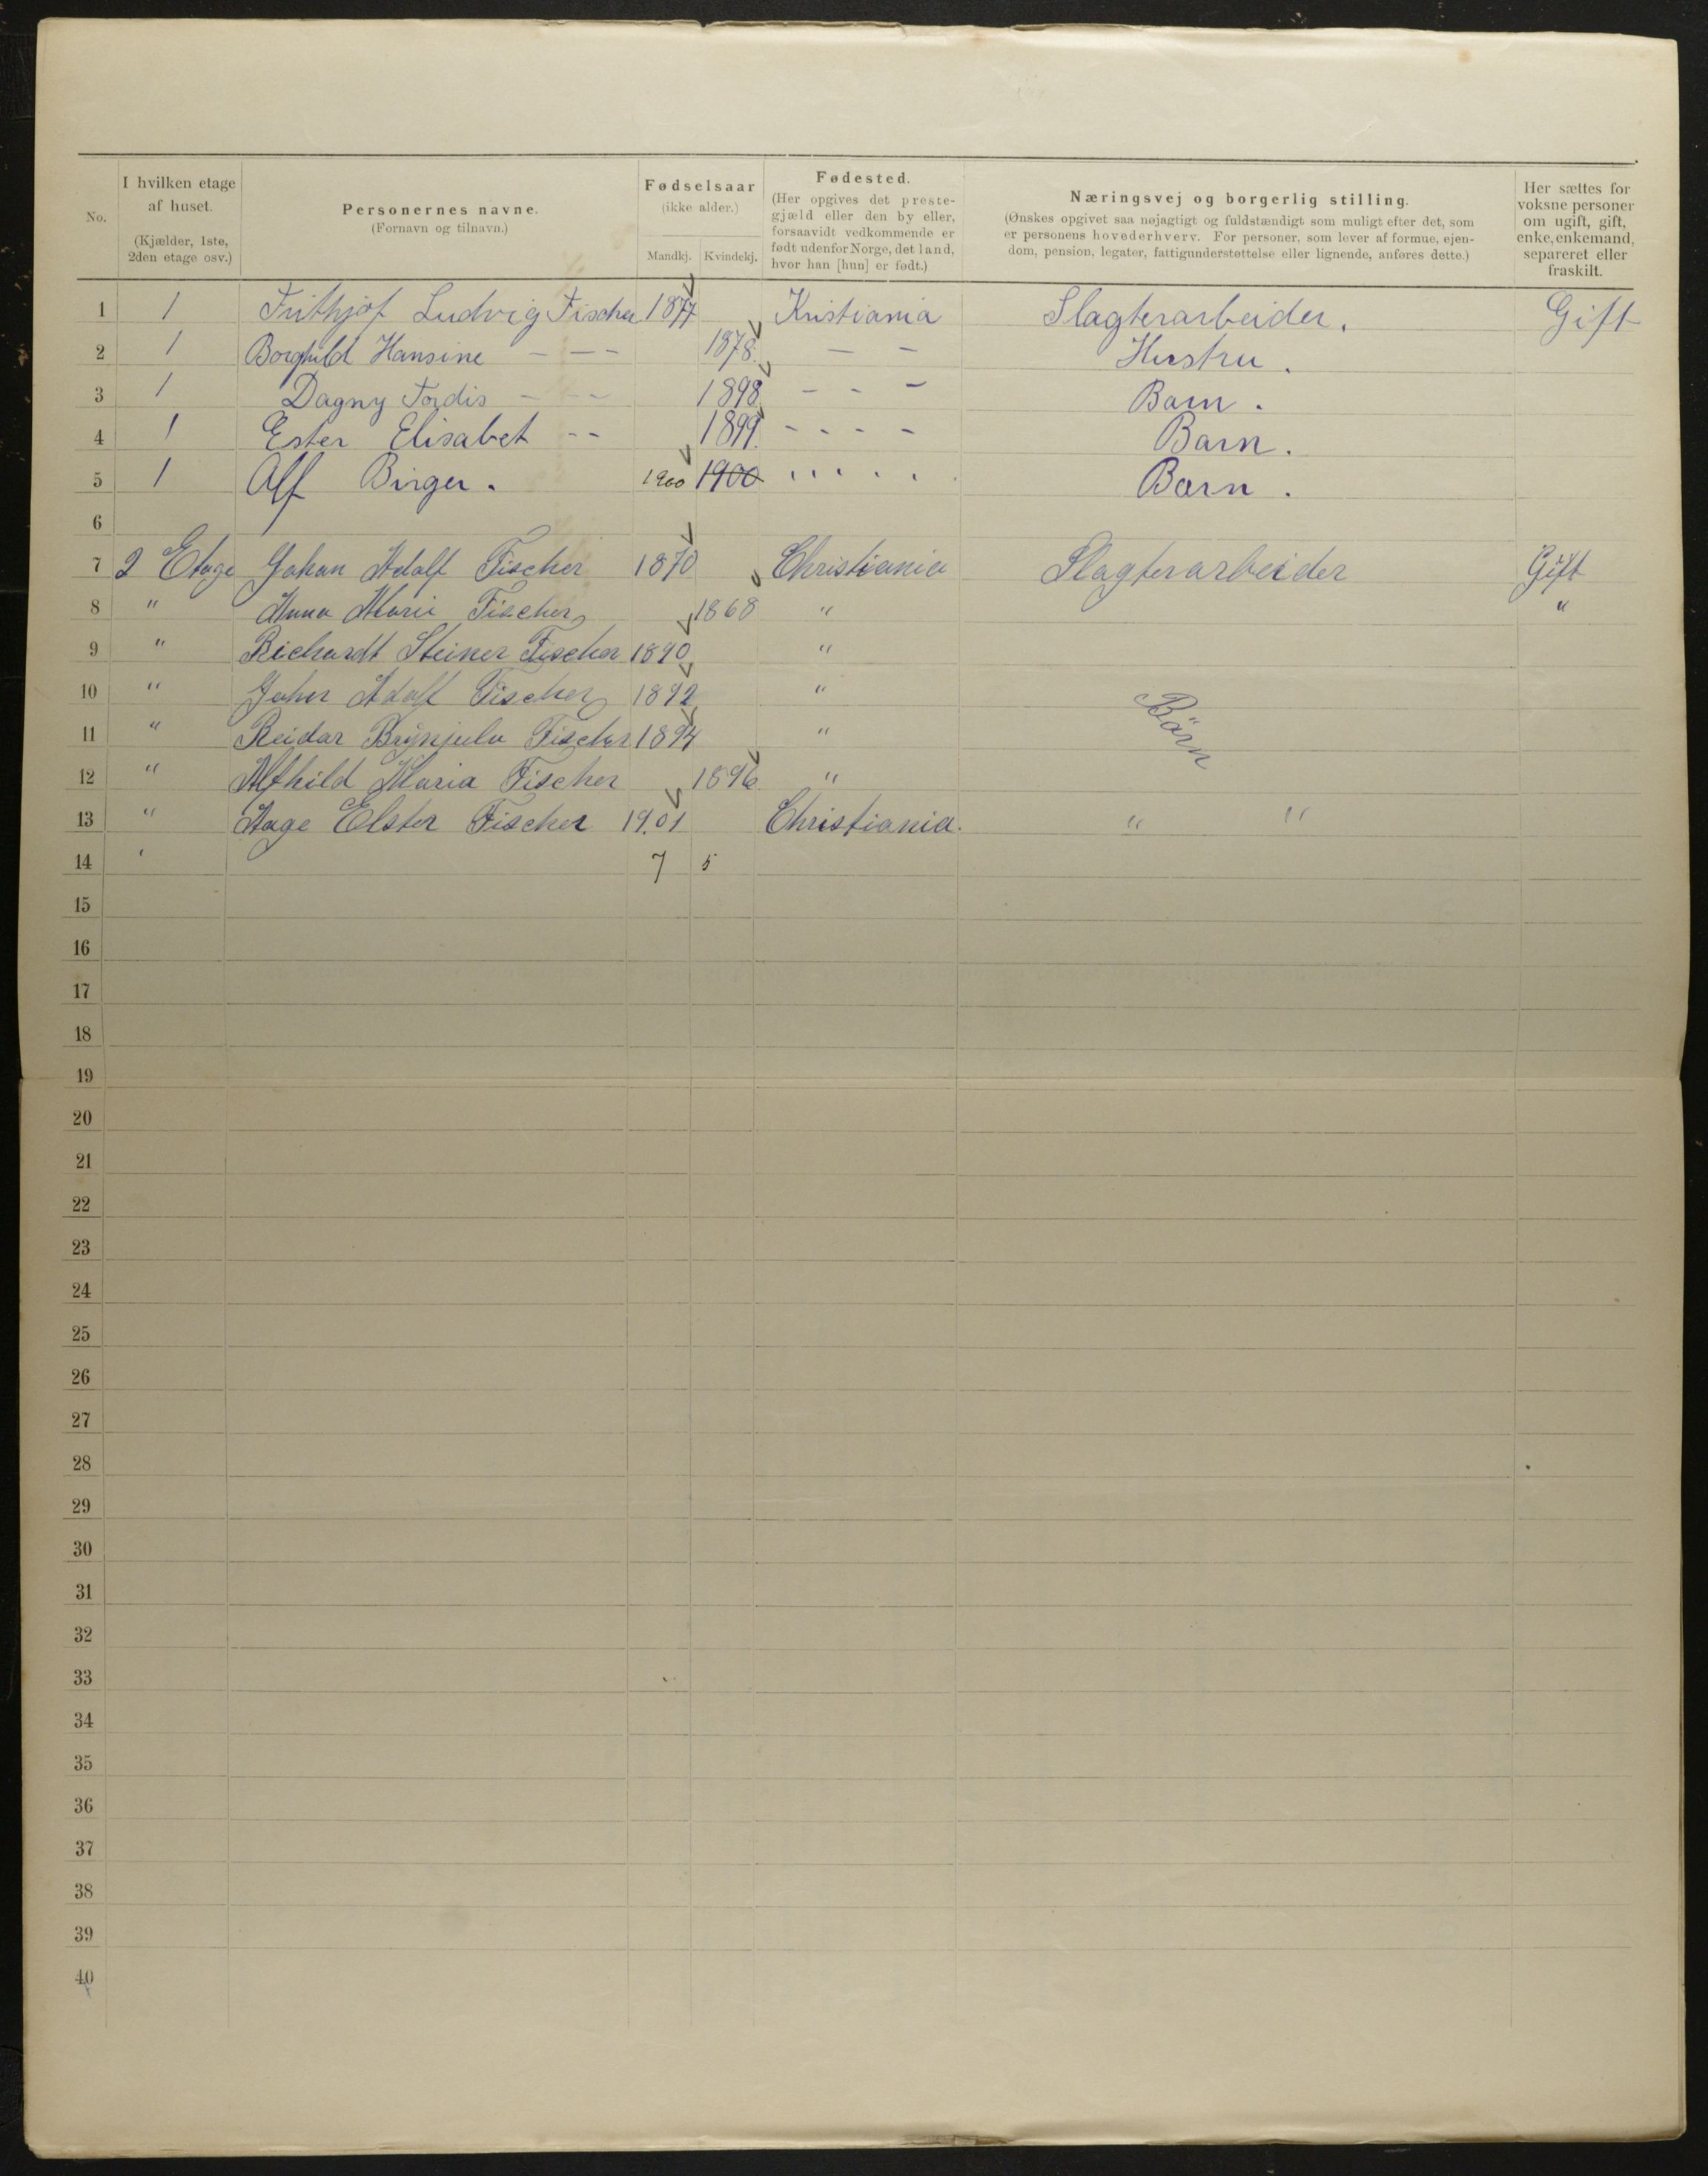 No. | I hvilken etage af huset. (Kjælder, 1ste, 2den etage osv.) | Personernes navne. (Fornavn og tilnavn.) | Fødselsaar (ikke alder.) Mandkj. | Kvindekj. | Fødested. (Her opgives det prestegjæld eller den by eller, forsaavidt vedkommende er født udenfor Norge, det land, hvor han [hun] er født.) | Næringsvej og borgerlig stilling. (Ønskes opgivet saa nøjagtigt og fuldstændigt som muligt efter det, som er personens hovederhverv. For personer, som lever af formue, ejendom, pension, legater, fattigunderstøttelse eller lignende, anføres dette.) | Her sættes for voksne personer om ugift, gift, enke, enkemand, separeret eller fraskilt.
1 1 Frithjof Ludvig Fischer 1877 Kristiania Slagterarbeider. Gift
2 1 Borghild Hansine – – – 1878. – – Hustru.
3 1 Dagny Tordis – – – 1898 – – – Barn.
4 1 Ester Elisabet – – 1899. – – – – Barn.
5 1 Alf Birger. 1900 1900 . . . . . Barn.
6
7 2 Etage Johan Adolf Fischer 1870 Christiania Slagterarbeider Gift
8 " Anna Marie Fischer 1868 " "
9 " Richardt Steiner Fischer 1890 "
10 " Johan Adolf Fischer 1892 " Börn
11 " Reidar Brynjulv Fischer 1894 "
12 " Alfhild Maria Fischer 1896 "
13 " Aage Elster Fischer 19.01 Christiania. " "
14 ' 7 5
15
16
17
18
19
20
21
22
23
24
25
26
27
28
29
30
31
32
33
34
35
36
37
38
39
40